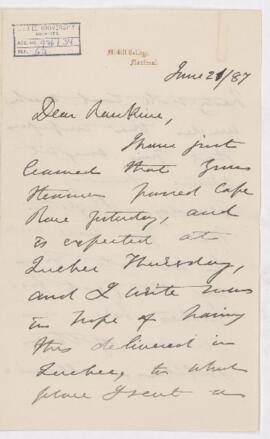 McGILL UNIVERSITY
ARCHIVES
ACC. NO.
REF.
McGill College,
Montreal.
June 21/87
Dear Rankine,
I have just
learned that your
steamer passed Cape
Race yesterday, and
is expected at
Quebec Thursday,
and I write now
in hope of having
this delivered in
Quebec, to which
place I sent a